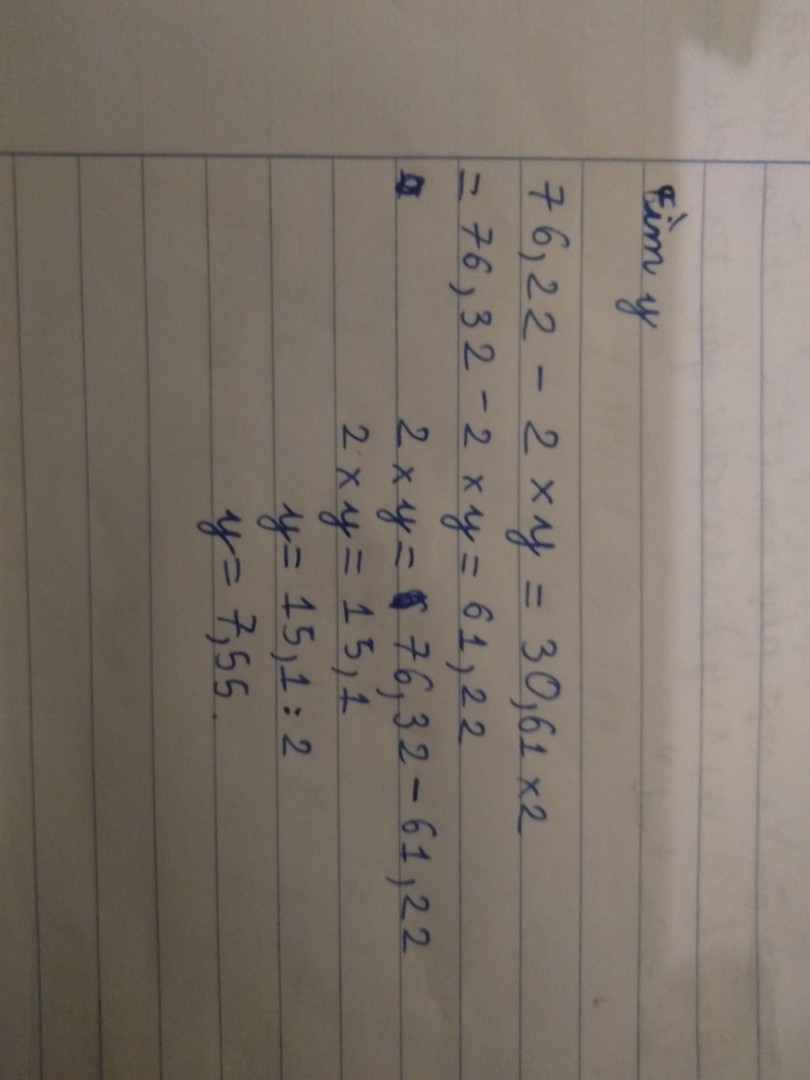 Tìm y
76,22 - 2 x y = 30,61 x 2
= 76,32 - 2 x y = 61,22
2 x y = 76,32 - 61,22
2 x y = 15,1
y = 15,1 : 2
y = 7,55.